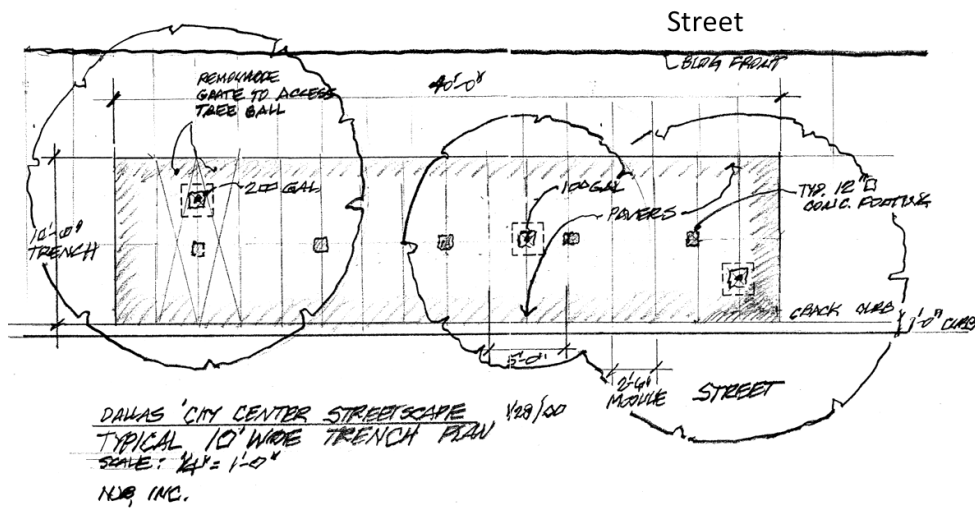 Street
BLDG FRONT
40'-0"
REMOVABLE
GRATE TO ACCESS
TREE BALL
200 GAL
100 GAL
PAVERS
TYP. 12"□
CONC. FOOTING
10'-0"
TRENCH
BACK CURB
1'-0" CURB
5'-0"
2'-6"
MODULE
STREET
DALLAS CITY CENTER STREETSCAPE 1/28/00
TYPICAL 10' WIDE TRENCH PLAN
SCALE: 1/4" = 1'-0"
INC.